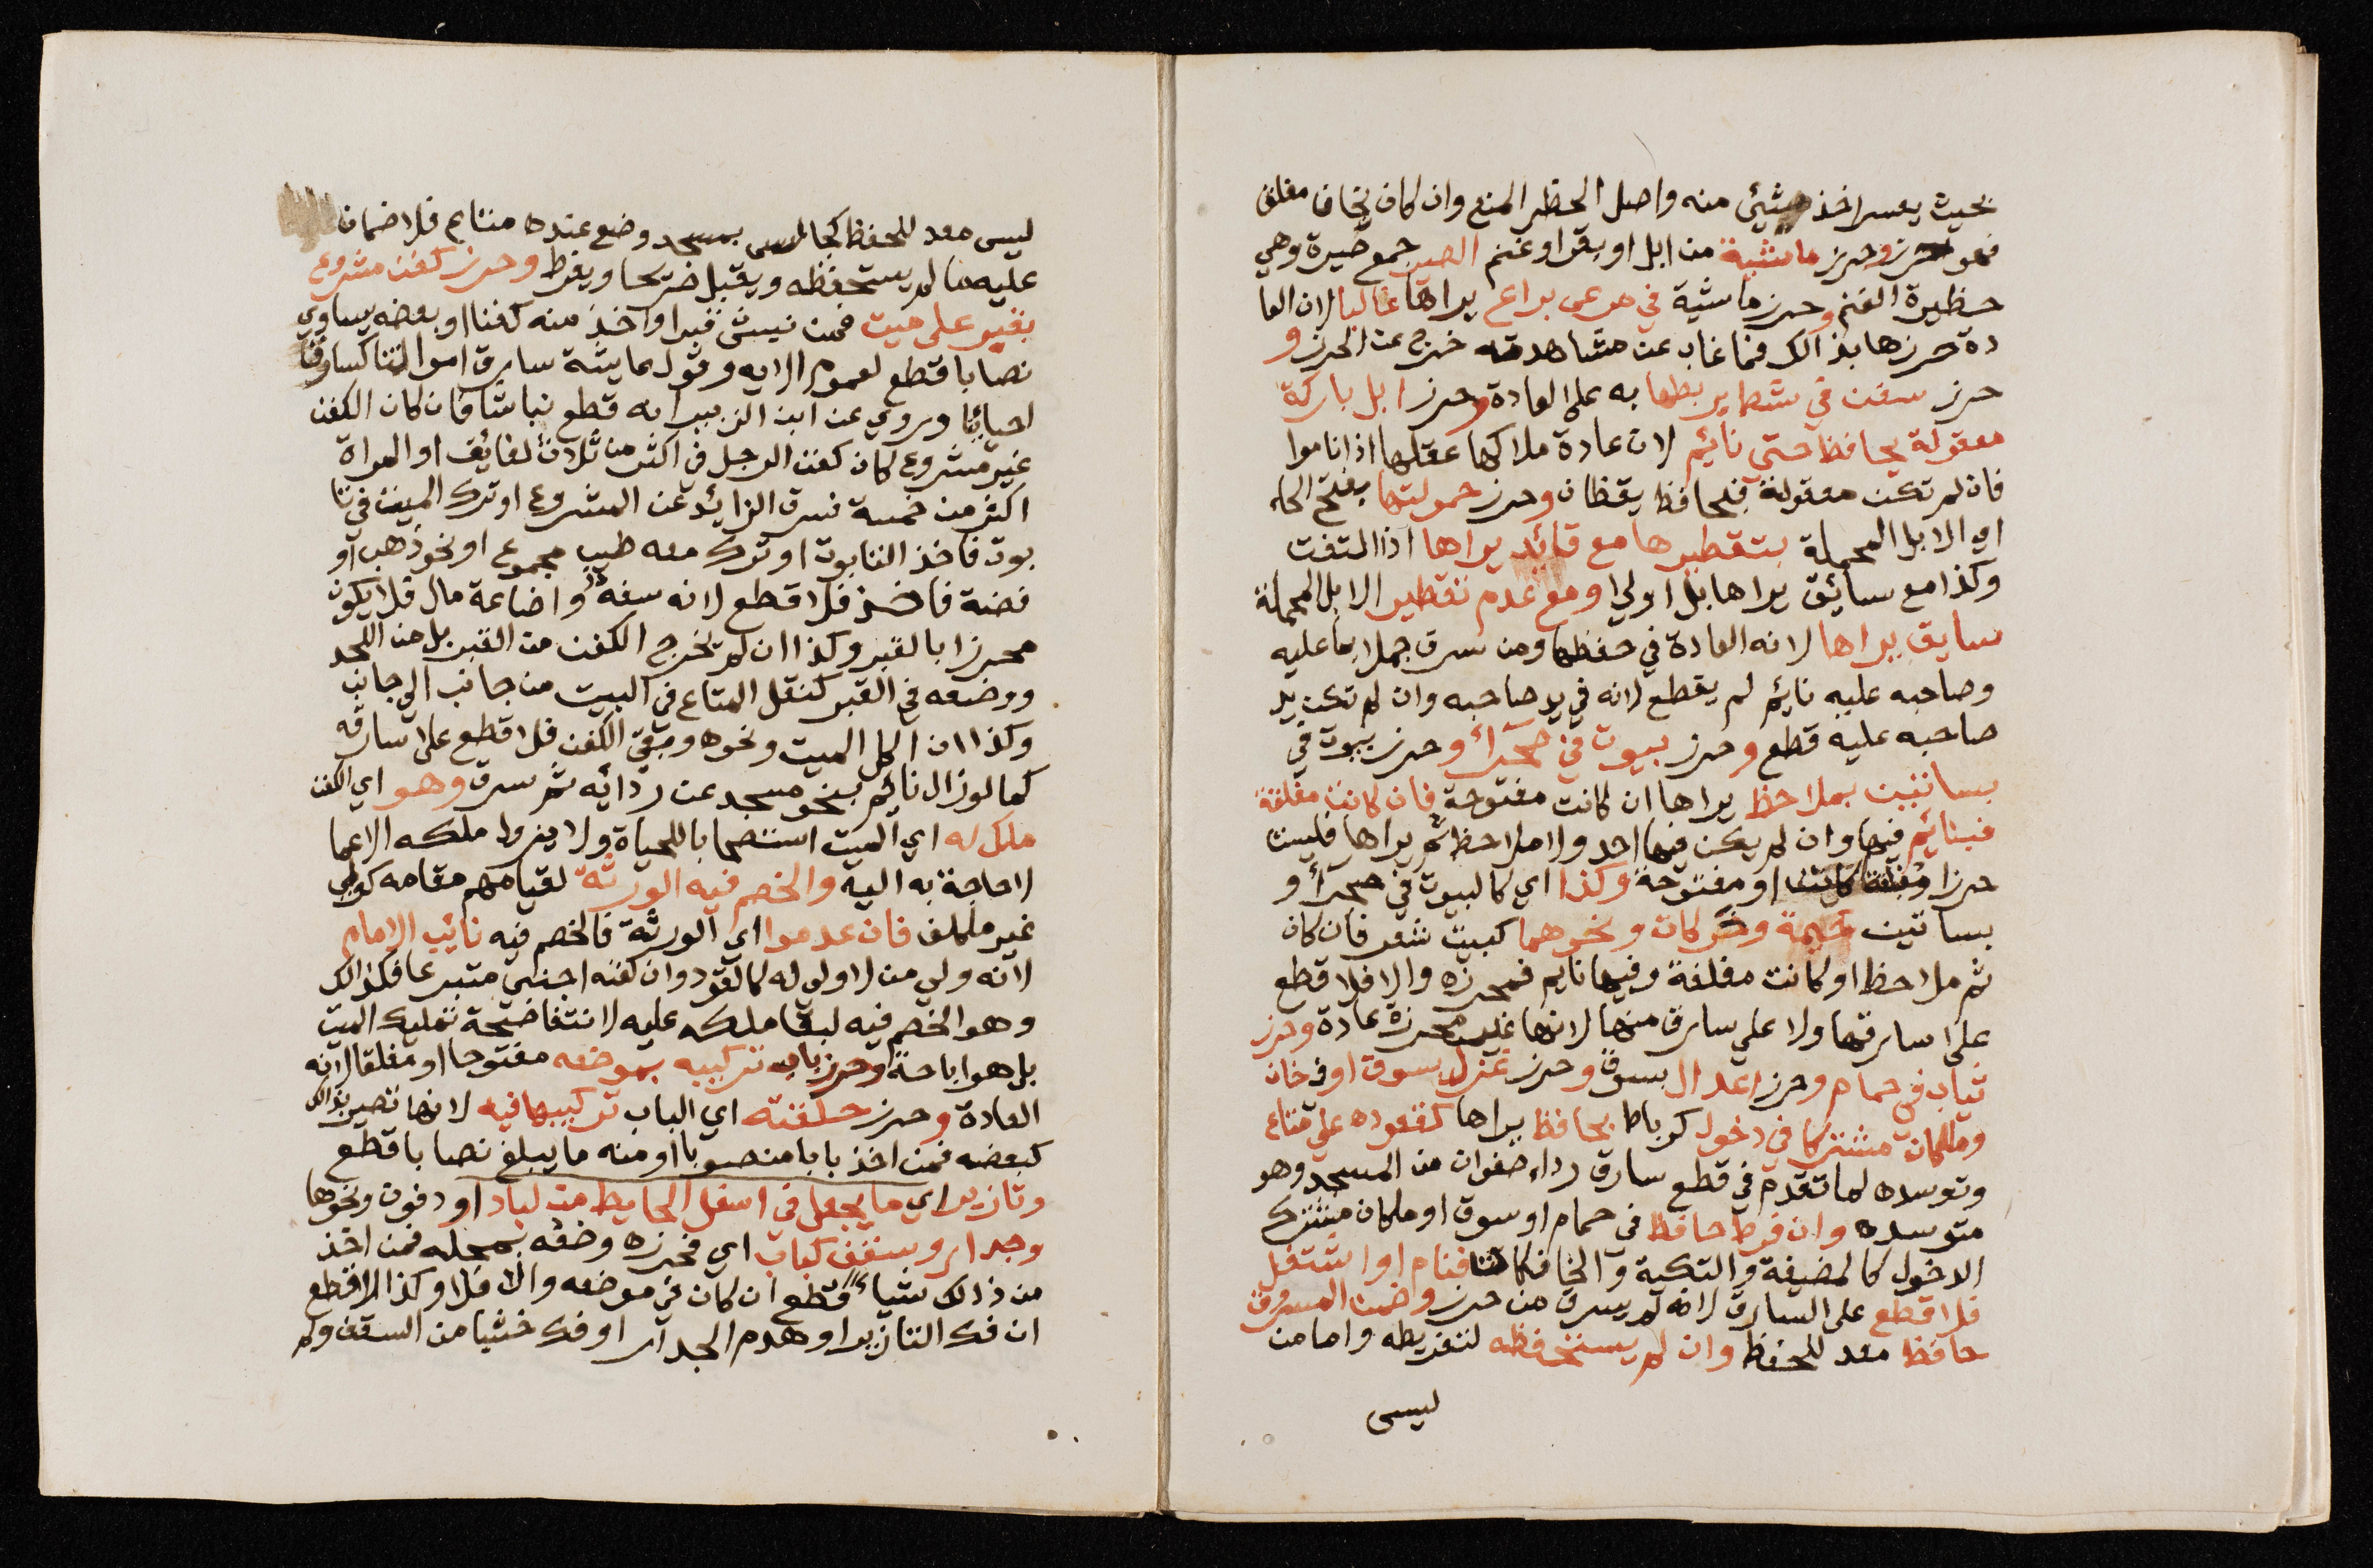 بحيث يعسر اخذ شيئ منه واصل الحظر المنع وان كان بخان مغلق
فهو حرز وحرز ماشية من ابل او بقر او غنم الصير جمع صيرة وهي
حظيرة الغنم وحرز ماشية في مرعى براع يراها غالبا لان العا
دة حرزها بذالك فما غاب عن مشاهدته خرج عن الحرز و
حرز سفن في شط بربطها به على العادة وحرز ابل باركة
معقولة بحافظ حتى نائم لان عادة ملاكها عقلها اذا ناموا
فان لم تكن معقولة فبحافظ يقظان وحرز حمولتها بفتح الحاء
اي الابل المحملة بتقطيرها مع قائد يراها اذا التفت
وكذا مع سائق يراها بل اولى او مع عدم تقطير الابل المحملة
سايق يراها لانه العادة في حفظها ومن سرق جملا بما عليه
وصاحبه عليه نائم لم يقطع لانه في يد صاحبه وان لم تكن يد
صاحبه عليه قطع وحرز بيوت في صحرآء وحرز بيوت في
بساتين بملاحظ يراها ان كانت مفتوحة فان كانت مغلقة
فبنائم فيها وان لم يكن فيها احد ولا ملاحظ ثم يراها فليست
حرزا مغلقة كانت او مفتوحة وكذا اي كالبيوت في صحرآء و
بساتين خيمة وخركات ونحوهما كبيت شعر فان كان
ثم ملاحظ او كانت مغلقة وفيها نايم فمحرزة والا فلا قطع
على سارقها ولا على سارق منها لانها غير محرزة عادة وحرز
ثياب في حمام وحرز اعدال بسوق وحرز غزل بسوق او في خان
وما كان مشتركا في دخول كرباط بحافظ يراها كقعوده على متاع
وتوسده لما تقدم في قطع سارق رداء صفوان من المسجد وهو
متوسده وان فرط حافظ في حمام او سوق او ما كان مشترك
الدخول كالمضيفة والتكية والخانكات فنام او اشتغل
فلا قطع على السارق لانه لم يسرق من حرز وضمن المسروق
حافظ معد للحفظ وان لم يستحفظه لتفريطه واما من
ليس
ليس معد للحفظ كجالس بمسجد وضع عنده متاع فلا ضمان
عليه ما لم يستحفظه ويقبل صريحا ويفرط وحرز كفن مشروع
بقبر على ميت فمن نبش قبرا واخذ منه كفنا او بعضه يساوي
نصابا قطع لعموم الايه وقول عايشة سارق امواتنا كسارق
احيائنا وروي عن ابن الزبير انه قطع نباشا فان كان الكفن
غير مشروع كان كفن الرجل في اكثر من ثلاث لفائف او المراة
اكثر من خمسة فسرق الزائد عن المشروع او ترك الميت في تا
بوت فاخذ التابوت او ترك معه طيب مجموع او نحو ذهب او
فضة فاخذ فلا قطع لانه سفه واضاعة مال فلا يكون
محرزا بالقبر وكذا ان لم يخرج الكفن من القبر بل من اللحد
ووضعه في القبر كنقل المتاع في البيت من جانب الى جانب
وكذا ان اكل الميت ونحوه وبقي الكفن فلا قطع على سارقه
كما لو زال نائم بنحو مسجد عن ردائه ثم سرق وهو اي الكفن
ملك له اي الميت استصحابا للحياة ولا يزول ملكه الا عما
لا حاجة به اليه والخصم فيه الورثة لقيامهم مقامه كولي
غير مكلف فان عدموا اي الورثة فالخصم فيه نائب الامام
لانه ولي من لا ولي له كالقود وان كفنه اجنبي متبرعا فكذالك
وهو الخصم فيه لبقا ملكه عليه لانتفا صحة تمليك الميت
بل هو اباحة وحرز باب تركيبه بموضعه مفتوحا او مغلقا لانه
العادة وحرز حلقته اي الباب تركيبها فيه لانها تصير بذالك
كبعضه فمن اخذ بابا منصوبا او منه ما يبلغ نصابا قطع
وتازير اي ما يجعل في اسفل الحايط من لباد او دفوف ونحوها
وجدار وسقف كباب اي فحرزه وضعه بمحله فمن اخذ
من ذالك شياء قطع ان كان في موضعه والا فلا وكذا لا قطع
ان فك التازير او هدم الجدار او فك خشبا من السقف ولم